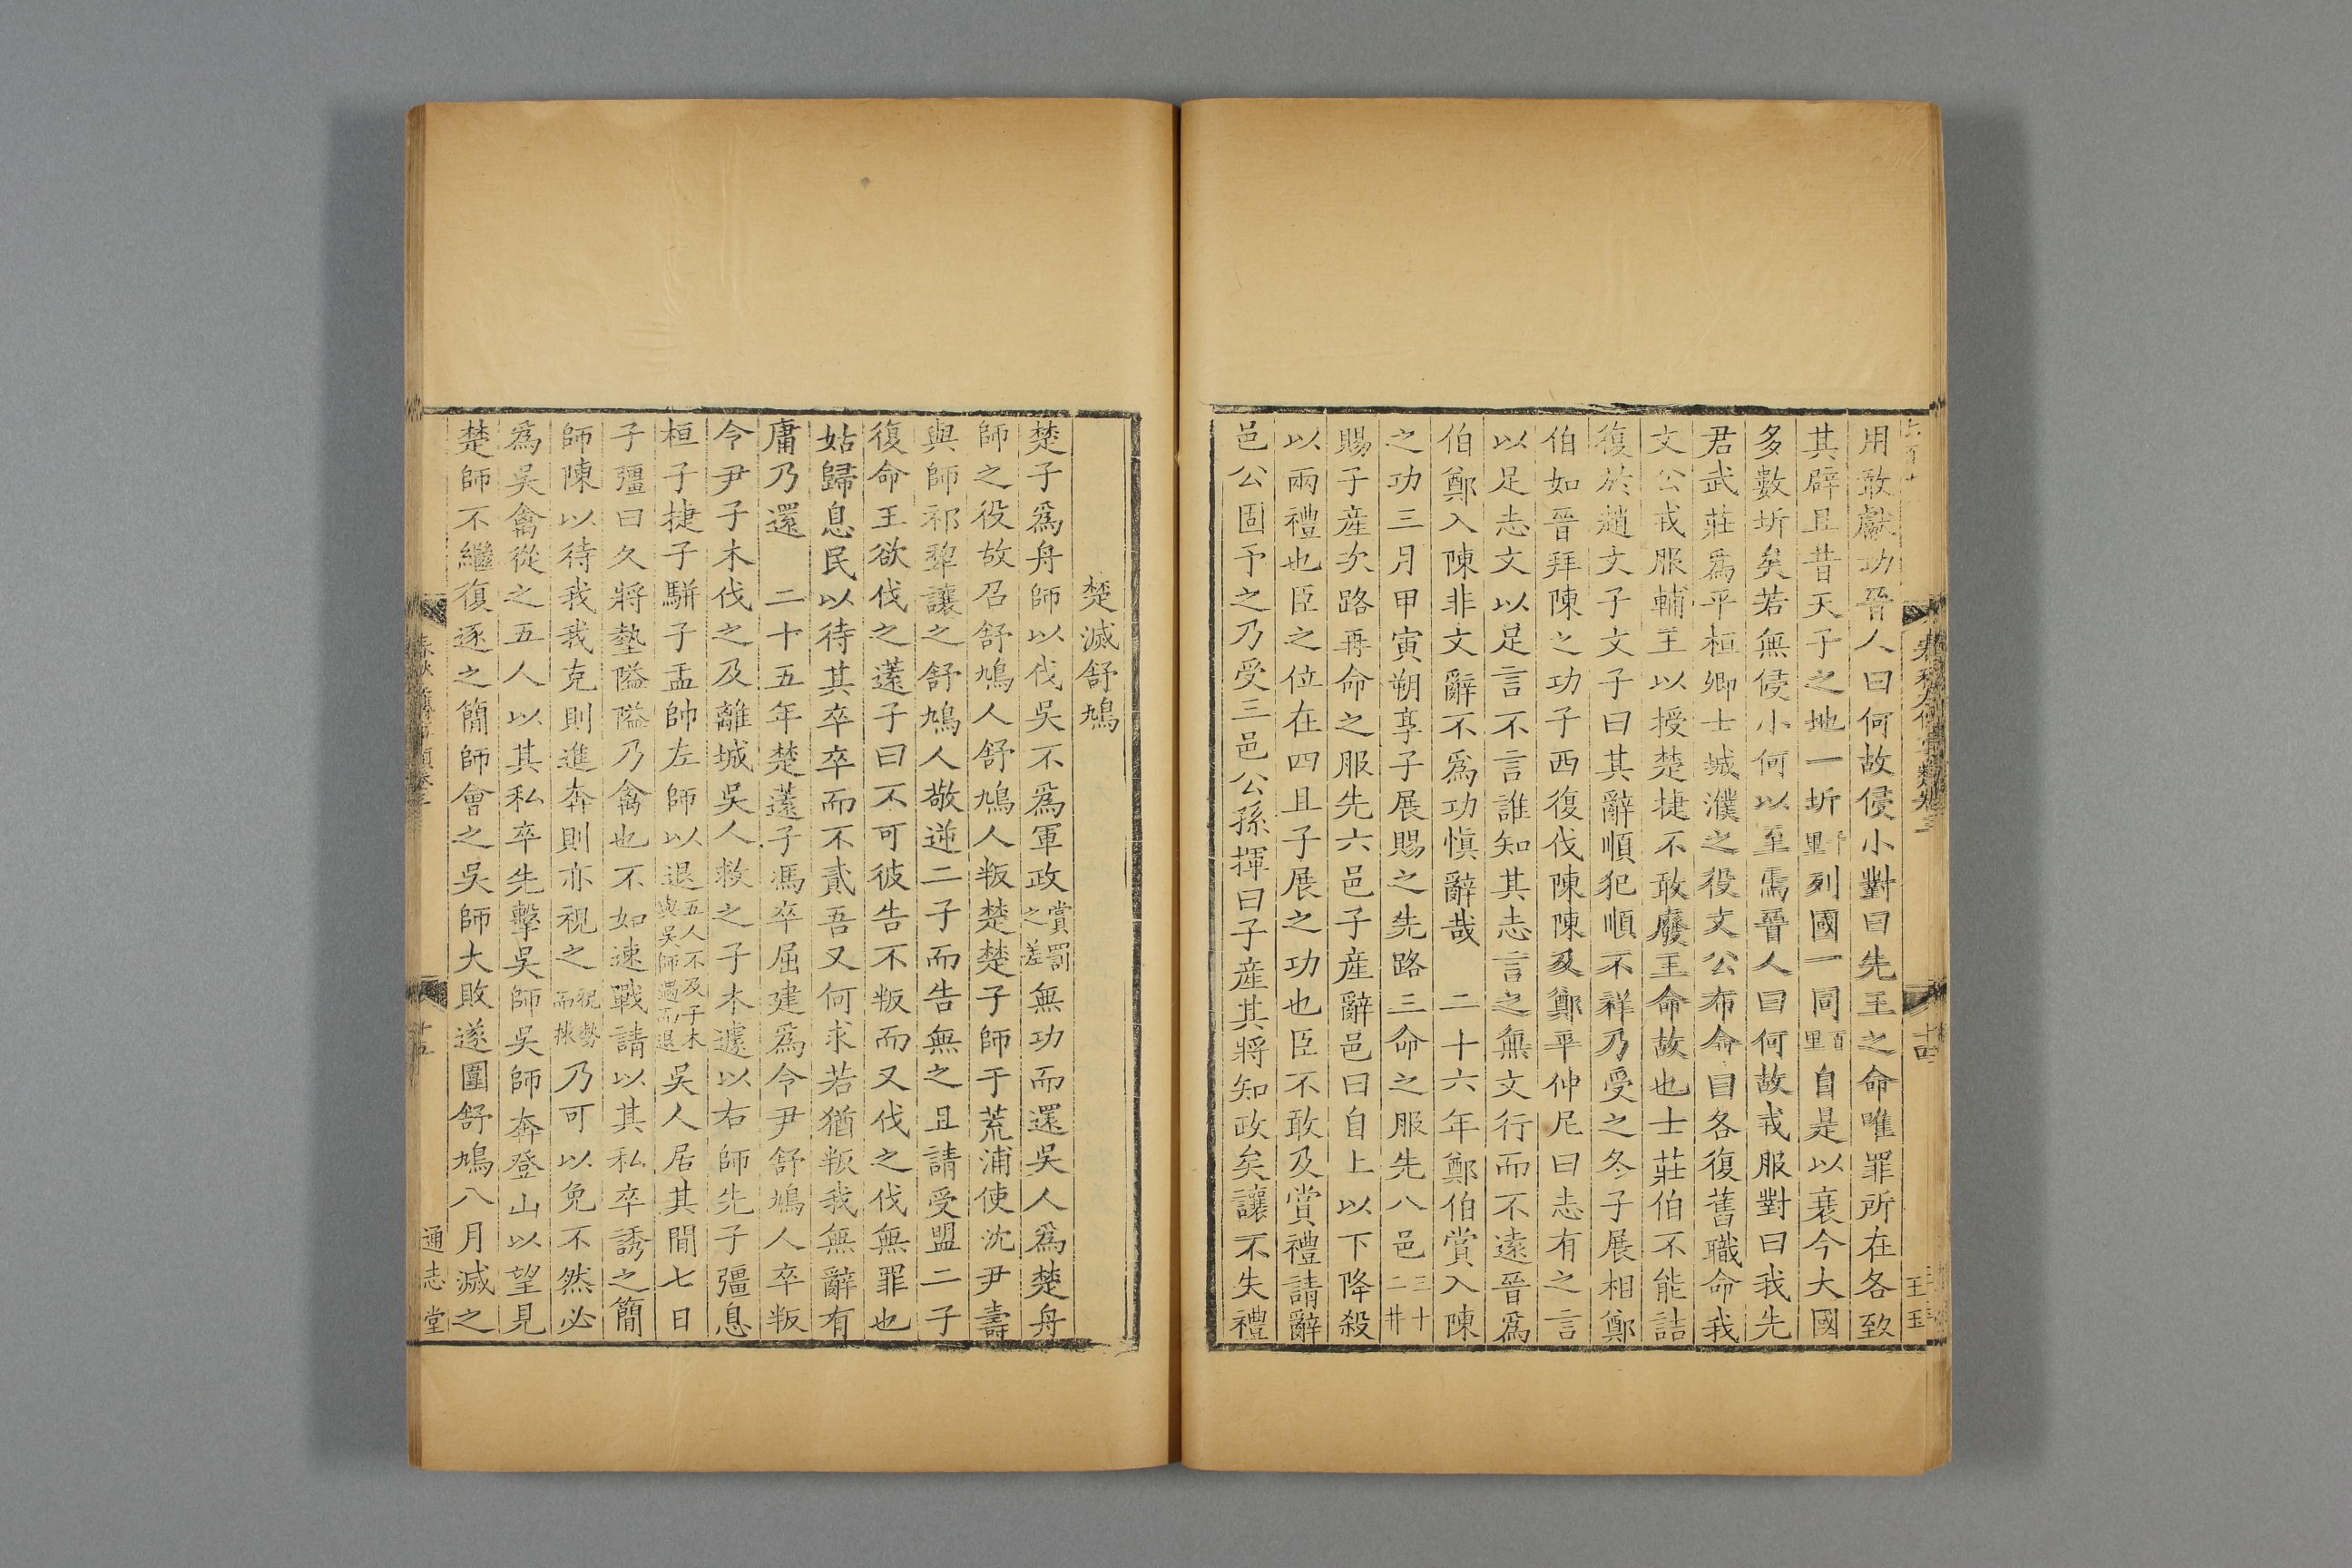 用敢獻功晉人曰何故侵小對曰先王之命唯罪所在各致
其辟且昔天子之地一圻千里列國一同百里自是以衰今大國
多數圻矣若無侵小何以至焉晉人曰何故戎服對曰我先
君武莊爲平桓卿士城濮之役文公布命曰各復舊職命我
文公戎服輔王以授楚捷不敢廢王命故也士莊伯不能詰
復於趙文子文子曰其辭順犯順不祥乃受之冬子展相鄭
伯如晉拜陳之功子西復伐陳陳及鄭平仲尼曰志有之言
以足志文以足言不言誰知其志言之無文行而不遠晉爲
伯鄭入陳非文辭不爲功愼辭哉　二十六年鄭伯賞入陳
之功三月甲寅朔享子展賜之先路三命之服先八邑三十二井
賜子産次路再命之服先六邑子産辭邑曰自上以下降殺
以兩禮也臣之位在四且子展之功也臣不敢及賞禮請辭
邑公固予之乃受三邑公孫揮曰子産其將知政矣讓不失禮
楚滅舒鳩
楚子爲舟師以伐吳不爲軍政賞罰之差無功而還吳人爲楚舟
師之役故召舒鳩人舒鳩人叛楚楚子師于荒浦使沈尹壽
與師祁犂讓之舒鳩人敬逆二子而告無之且請受盟二子
復命王欲伐之薳子曰不可彼告不叛而又伐之伐無罪也
姑歸息民以待其卒卒而不貳吾又何求若猶叛我無辭有
庸乃還　二十五年楚薳子馮卒屈建爲令尹舒鳩人卒叛
令尹子木伐之及離城吳人救之子木遽以右師先子彊息
桓子捷子騈子盂帥左師以退五人不及子木與吳師遇而退吳人居其間七日
子彊曰久將墊隘隘乃禽也不如速戰請以其私卒誘之簡
師陳以待我我克則進奔則亦視之視勢而捄乃可以免不然必
爲吳禽從之五人以其私卒先擊吳師吳師奔登山以望見
楚師不繼復逐之簡師會之吳師大敗遂圍舒鳩八月滅之
通志堂